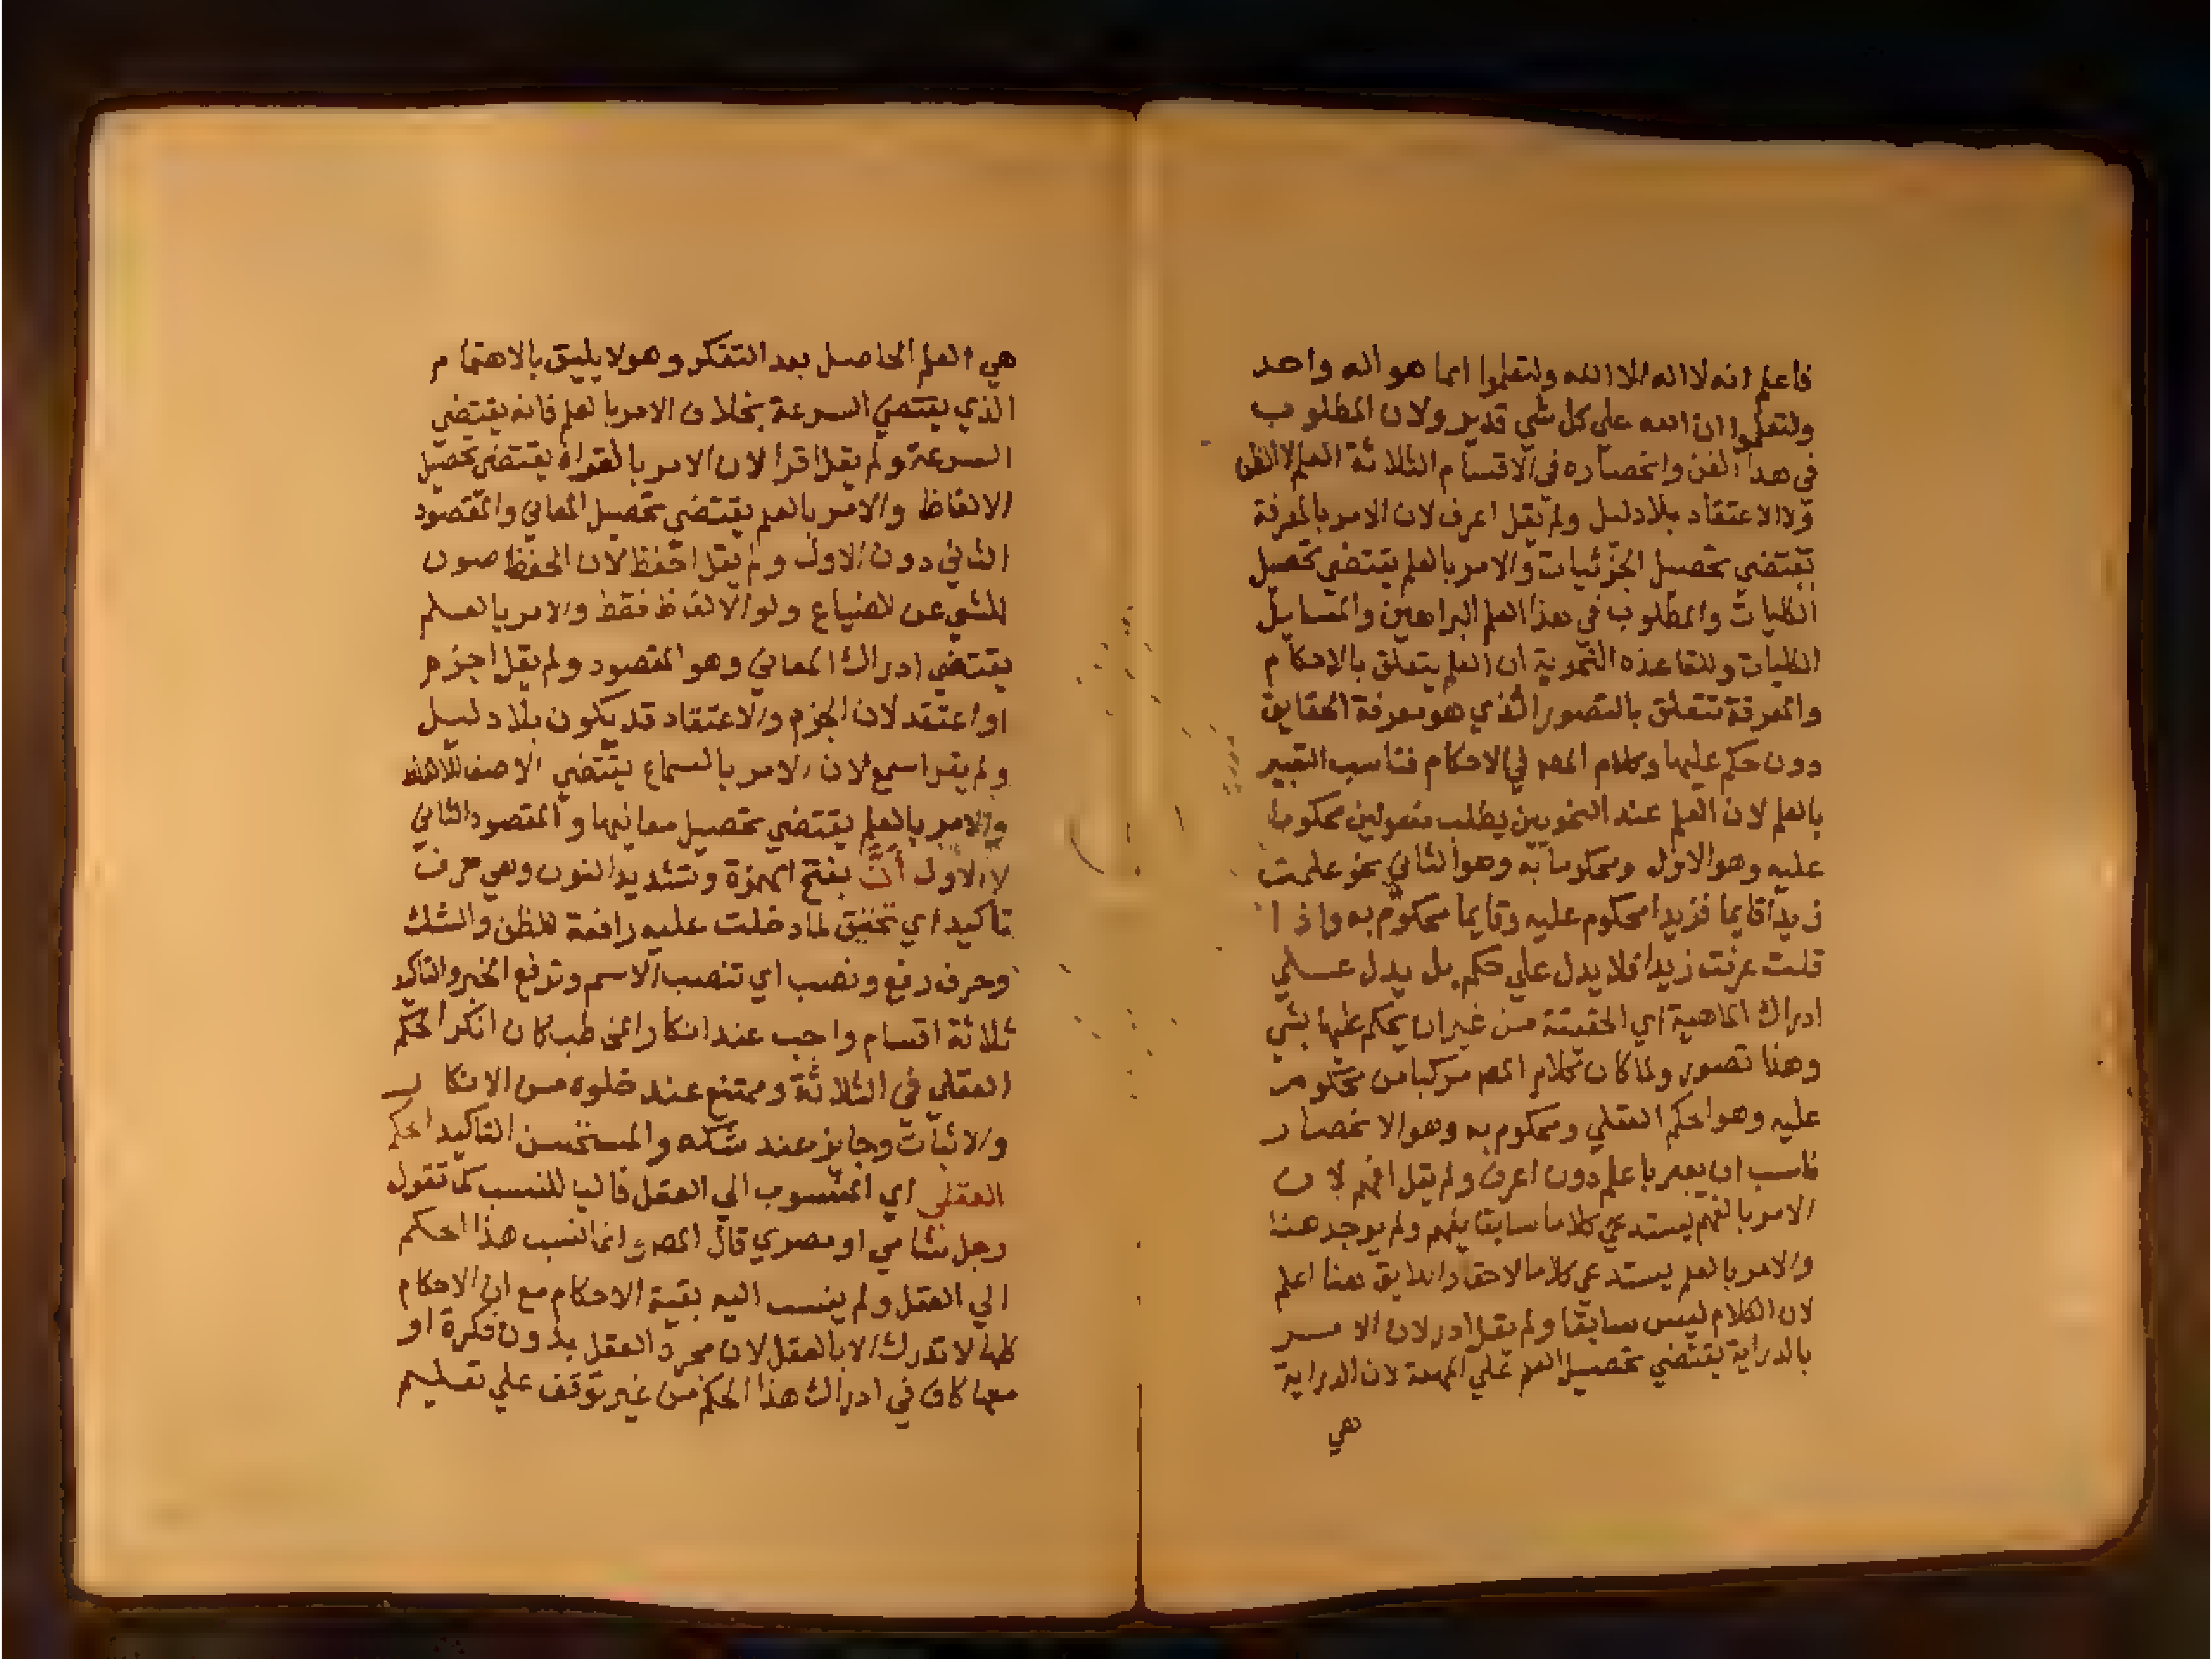 فاعلم انه لا اله الا الله ولتعلموا انما هو اله واحد
ولتعلموا ان الله علي كل شي قدير ولان المطلوب
في هذا الفن وانحصاره في الاقسام الثلاثة العلم لا الظن
ولا الاعتقاد بلا دليل ولم يقل اعرف لان الامر بالمعرفة
يقتضي تحصيل الجزئيات والامر بالعلم يقتضي تحصيل
الكليات والمطلوب في هذا العلم البراهين والمسايل
الكليات وللقاعذه النحوية ان العلم يتعلق بالاحكام
والمعرفة تتعلق بالتصور الذي هو معرفة الحقايق
دون حكم عليها وكلام المصـ في الاحكام فناسب التعبير
بالعلم لان العلم عند النحويين يطلب مفعولين محكوما
عليه وهو الاول ومحكوما به وهو الثاني نحو علمت
زيدا قايما فزيدا محكوم عليه وقايما محكوم به واذا
قلت عرفت زيدا فلا يدل علي حكم بل يدل عـلي
ادراك الماهية اي الحقيقة من غير ان يحكم عليها بشي
وهذا تصور ولما كان كلام المصـ مركبا من محكوم
عليه وهو الحكم العقلي ومحكوم به وهو الانحصار
ناسب ان يعبر باعلم دون اعرف ولم يقل افهم لان
الامر بالفهم يستدعي كلاما سابقا يفهم ولم يوجد هنا
والامر بالعلم يستدعي كلاما لاحقا هنا اعلم
لان الكلام ليس سابقا ولم يقل ادر لان الامر
بالدراية يقتضي تحصيل العلم علي المهمة لان الدراية
هي
هي العلم الحاصل بعد التفكر وهو لا يليق بالاهتمام
الذي يقتضي السرعة بخلاف الامر بالعلم فانه يقتضي
السرعة ولم يقل اقرا لان الامر بالقراة يقتضي تحصيل
الالفاظ والامر بالعلم يقتضي تحصيل المعاني والمقصود
الثاني دون الاول ولم يقل احفظ لان الحفظ صون
للشي عن الضياع ولو الالفاظ فقط والامر بالعلم
يقتضي ادراك المعاني وهو المقصود ولم يقل اجزم
او اعتقد لان الجزم والاعتقاد قد يكون بلا دليل
ولم يقل اسمع لان الامر بالسماع يقتضي
والامر بالعلم يقتضي تحصيل معانيها والمقصود الثاني
لا الاول أنَّ بفتح الهمزة وتشديد النون وهي حرف
تاكيد اي تحقيق لما دخلت عليه رافعة للظن والشك
وحرف رفع ونصب اي تنصب الاسم وترفع الخبر والتاكيد
ثلاثة اقسام واجب عند انكار المخاطب كان انكر الحكم
العقلي في الثلاثة وممتنع عند خلوه من الانكار
والاثبات وجايز عند شكه والمستحسن التاكيد الحكم
العقلي اي المنسوب الي العقل فاليا للنسب كما تقول
رجل شامي او مصري قال المصـ وانما نسب هذا الحكم
الي العقل ولم ينسب اليه بقية الاحكام مع ان الاحكام
كلها لا تدرك الا بالعقل لان مجرد العقل بدون فكرة او
معها كاف في ادراك هذا الحكم من غير توقف علي تعليم